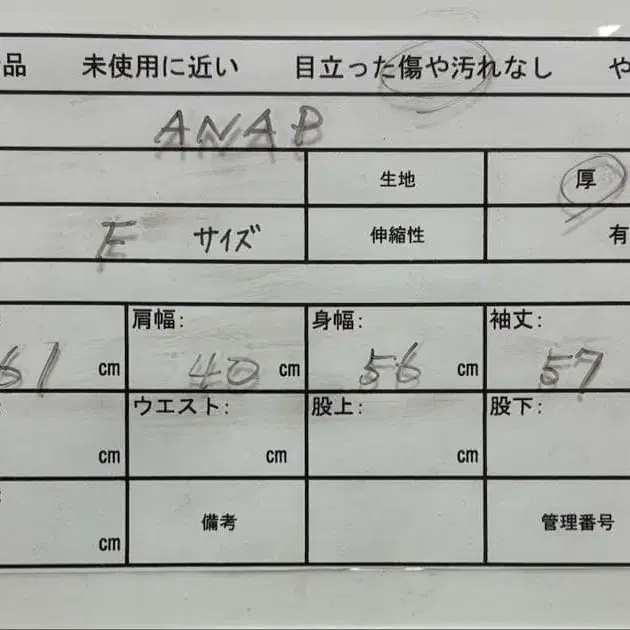 品 未使用に近い 目立った傷や汚れなし や
ANAP
生地 厚
F サイズ 伸縮性 有
61 cm 肩幅: 40 cm 身幅: 56 cm 袖丈: 57
cm ウエスト: cm 股上: cm 股下:
cm 備考 管理番号